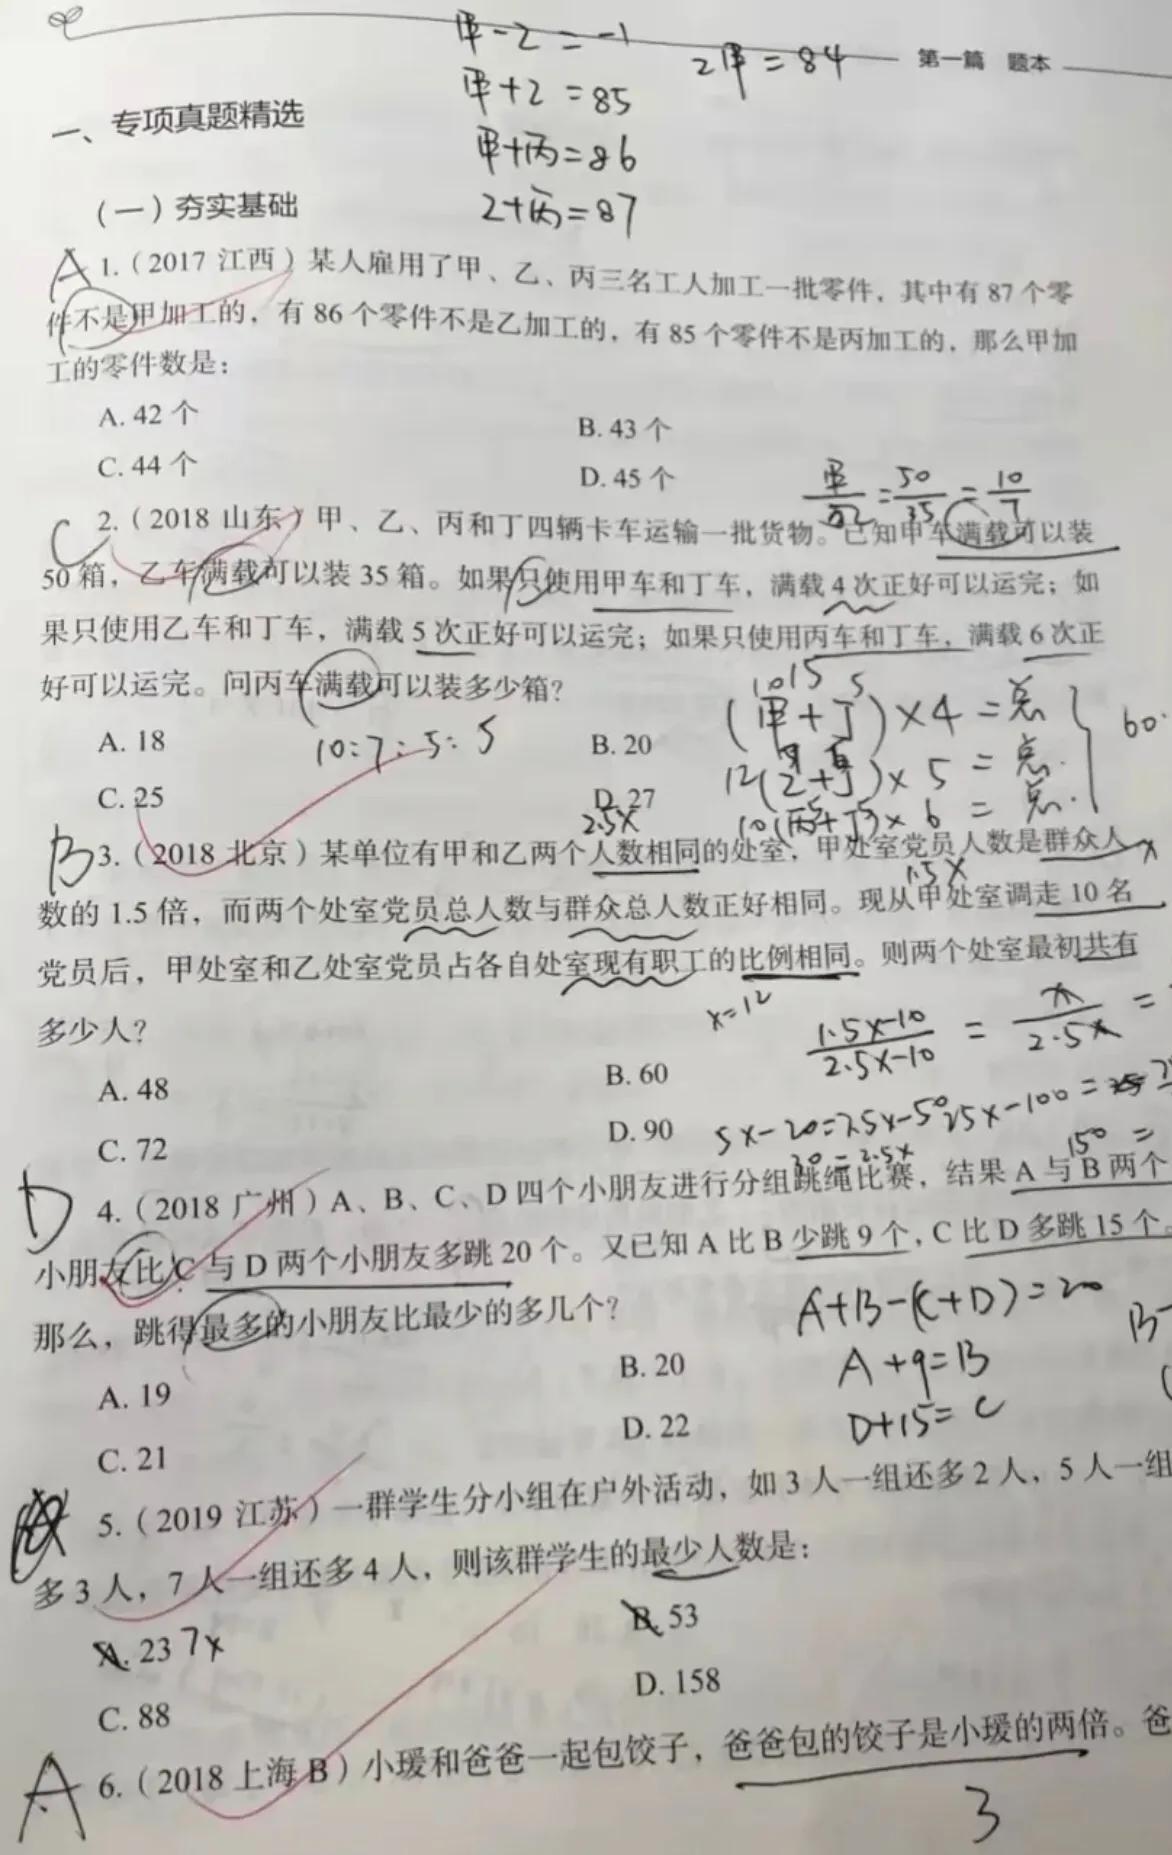 甲-乙=-1
2甲=84
第一篇 题本
甲+乙=85
一、专项真题精选
甲+丙=86
(一)夯实基础
乙+丙=87
A 1.(2017 江西)某人雇用了甲、乙、丙三名工人加工一批零件，其中有 87 个零
件不是甲加工的，有 86 个零件不是乙加工的，有 85 个零件不是丙加工的，那么甲加
工的零件数是：
A. 42 个
B. 43 个
C. 44 个
D. 45 个
甲/乙=50/35=10/7
C 2.(2018 山东)甲、乙、丙和丁四辆卡车运输一批货物。已知甲车满载可以装
50 箱，乙车满载可以装 35 箱。如果只使用甲车和丁车，满载 4 次正好可以运完；如
果只使用乙车和丁车，满载 5 次正好可以运完；如果只使用丙车和丁车，满载 6 次正
好可以运完。问丙车满载可以装多少箱?
1015 5
(甲+丁)×4=总
60
A. 18
10:7:5:5
B. 20
12(乙+丁)×5=总
C. 25
D. 27
10(丙+丁)×6=总
2.5x
B 3.(2018 北京)某单位有甲和乙两个人数相同的处室，甲处室党员人数是群众人
x
1.5x
数的 1.5 倍，而两个处室党员总人数与群众总人数正好相同。现从甲处室调走 10 名
党员后，甲处室和乙处室党员占各自处室现有职工的比例相同。则两个处室最初共有
多少人?
x=12
1.5x-10/2.5x-10=x/2.5x=
A. 48
B. 60
C. 72
D. 90
5x-20=2.5x-50
25x-100=
30=2.5x
150=
D 4.(2018 广州)A、B、C、D 四个小朋友进行分组跳绳比赛，结果 A 与 B 两个
小朋友比 C 与 D 两个小朋友多跳 20 个。又已知 A 比 B 少跳 9 个，C 比 D 多跳 15 个。
那么，跳得最多的小朋友比最少的多几个?
A+B-(C+D)=20
B-
A. 19
B. 20
A+9=B
C. 21
D. 22
D+15=C
5.(2019 江苏)一群学生分小组在户外活动，如 3 人一组还多 2 人，5 人一组
多 3 人，7 人一组还多 4 人，则该群学生的最少人数是：
A. 23 7x
B. 53
C. 88
D. 158
A 6.(2018 上海 B)小瑗和爸爸一起包饺子，爸爸包的饺子是小瑗的两倍。爸
3